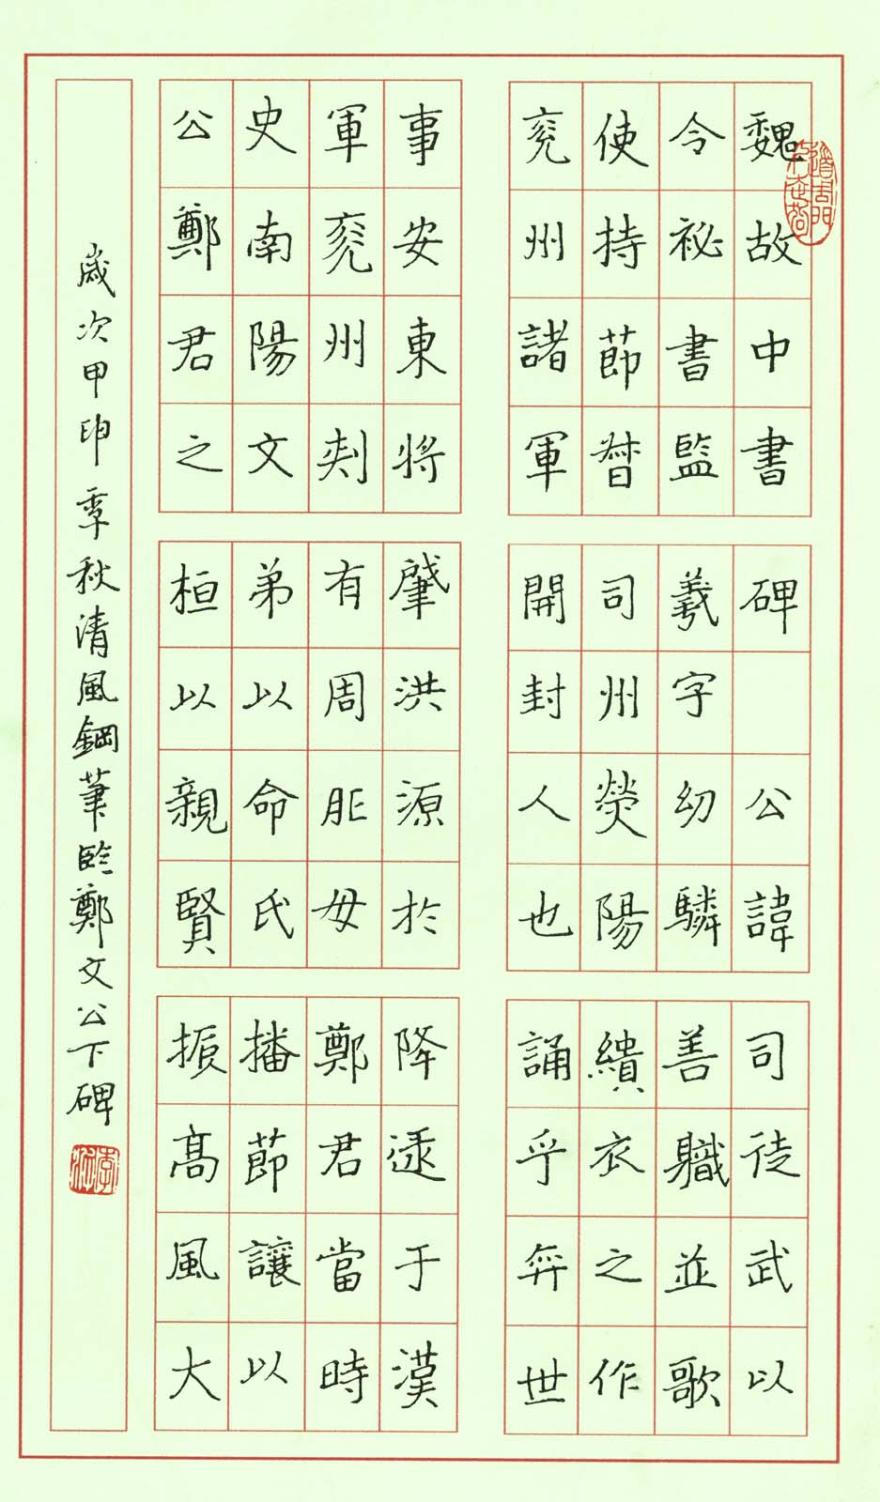 魏故中書
令祕書監
使持莭督
兖州諸軍
事安東將
軍兖州刾
史南陽文
公鄭君之
碑 公諱
羲字幼驎
司州熒陽
開封人也
肇洪源於
有周胙母
弟以命氏
桓以親賢
司徒武以
善軄並歌
緇衣之作
誦乎弈世
降逯于漢
鄭君當時
播莭讓以
振髙風大
歲次甲申季秋清風鋼筆臨鄭文公下碑